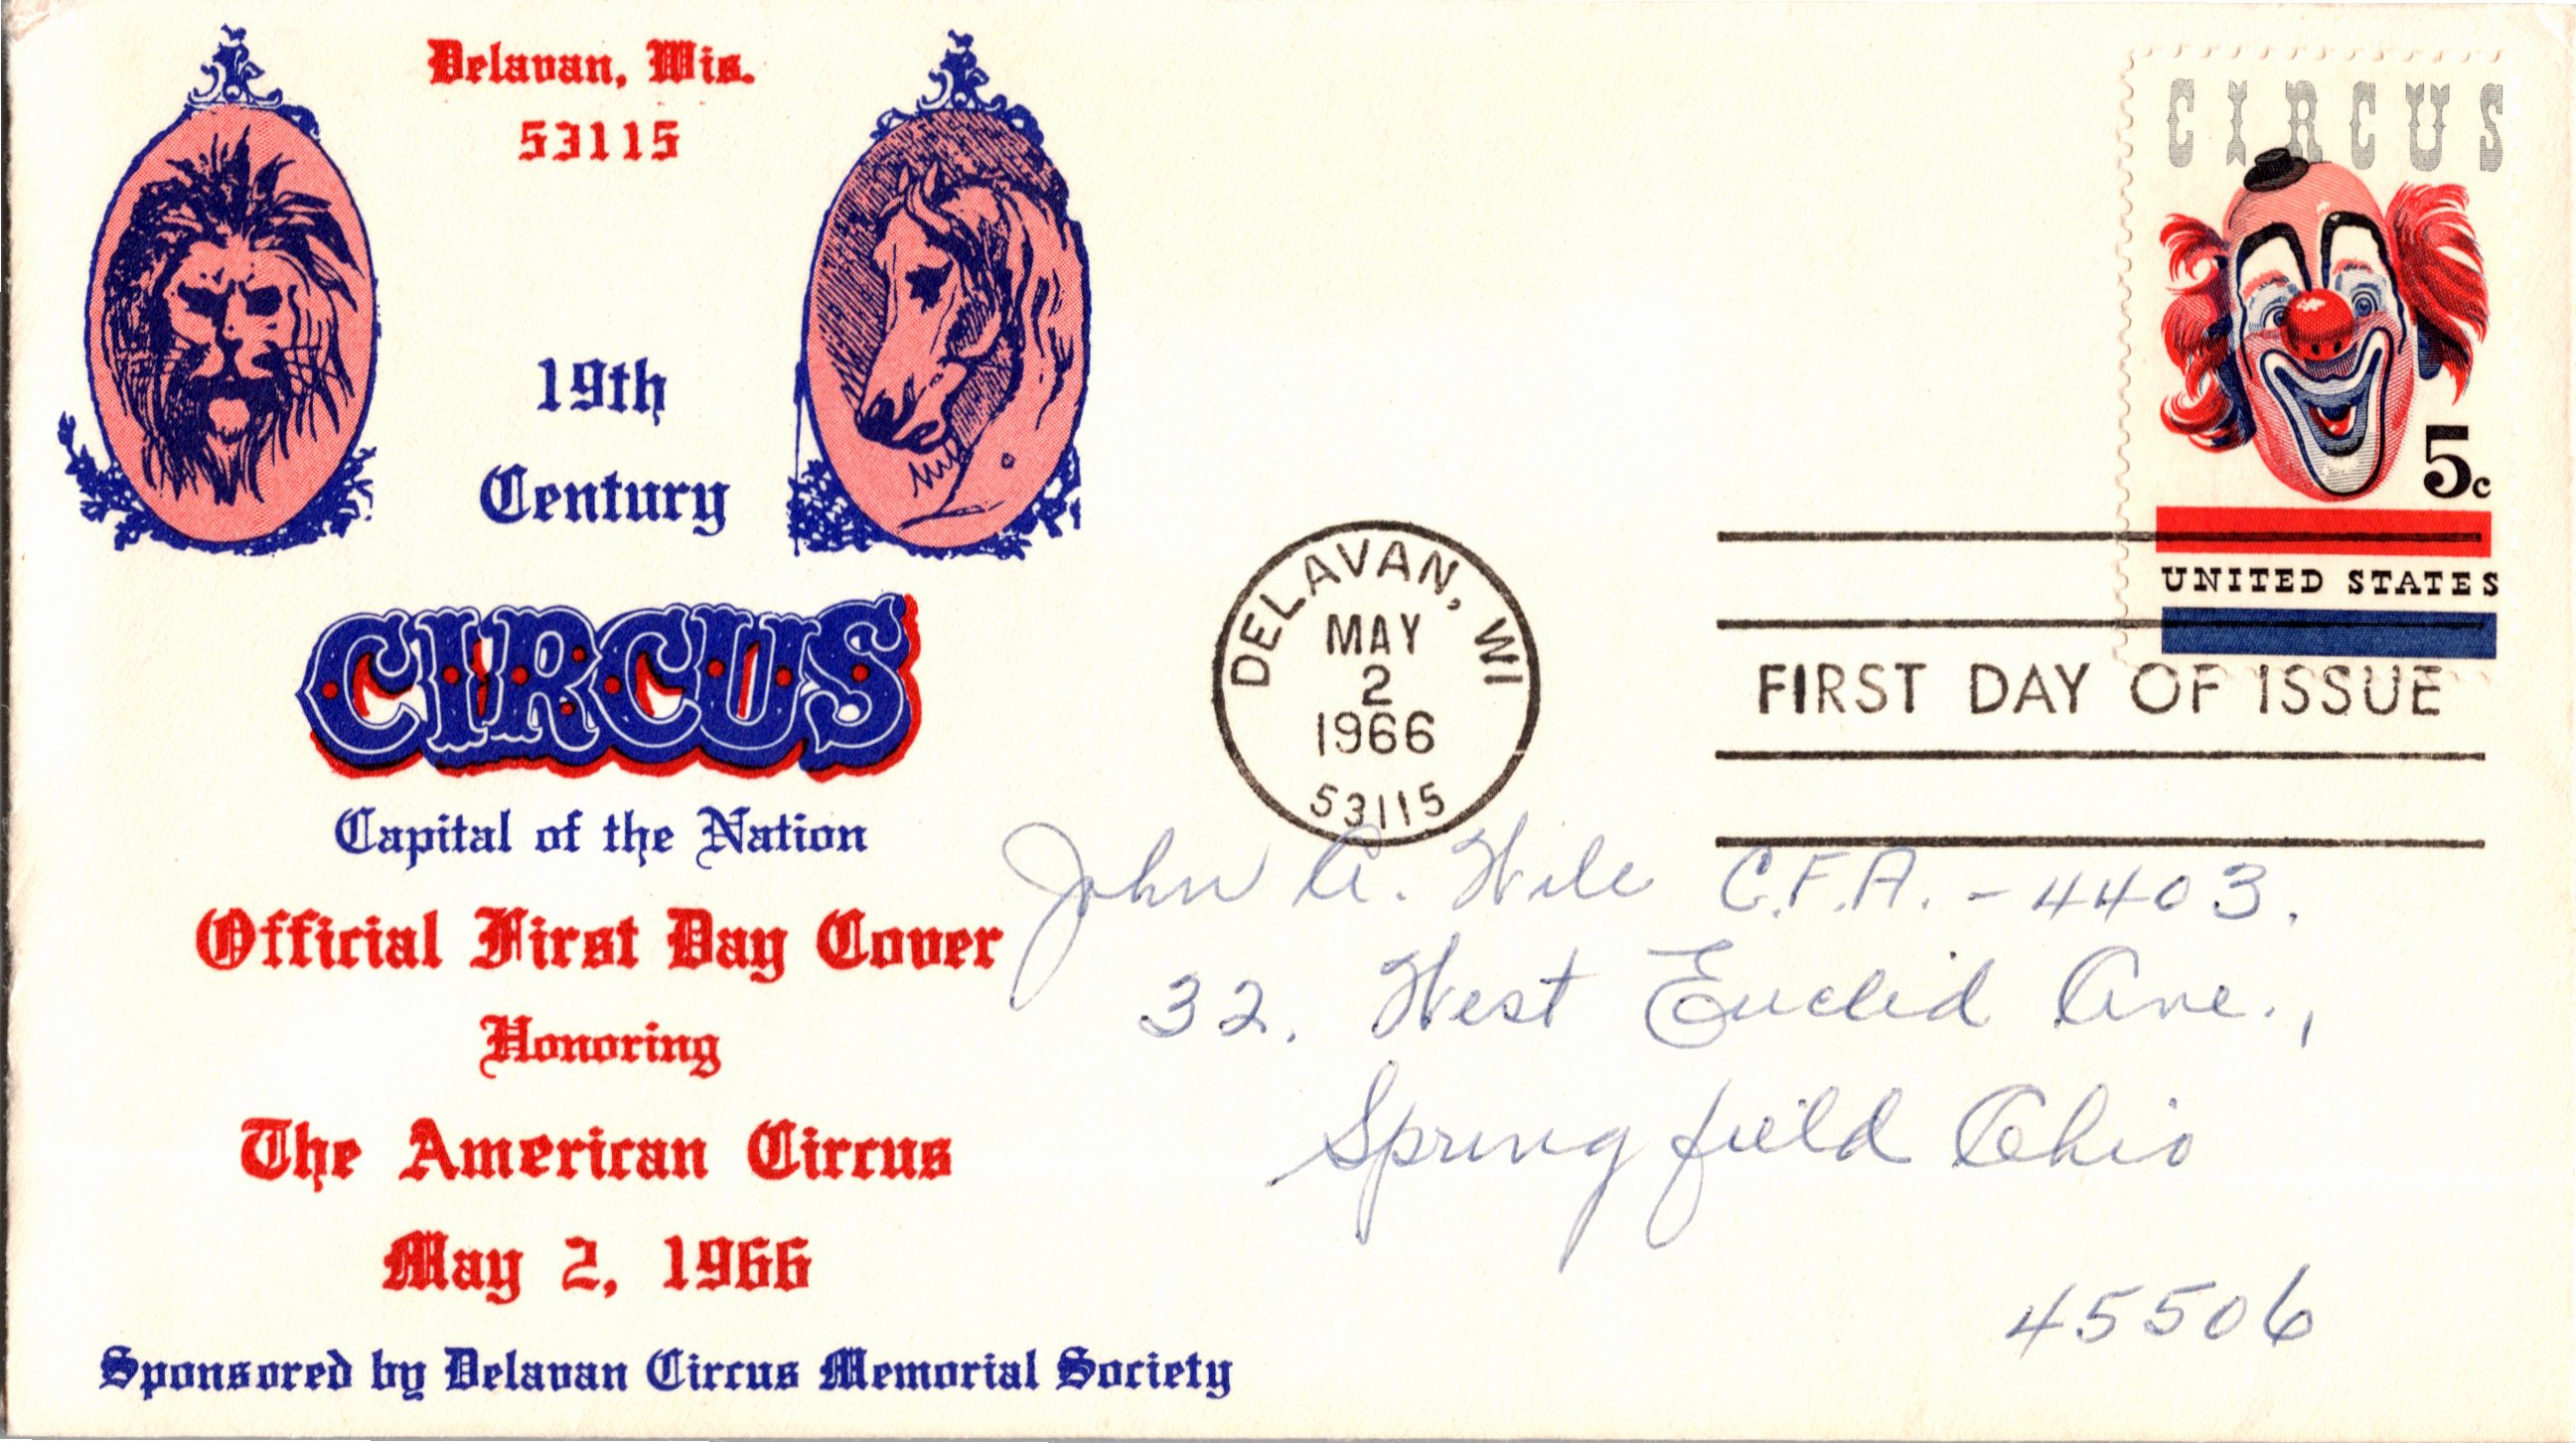 Delavan, Wis.
53115
19th
Century
CIRCUS
Capital of the Nation
Official First Day Cover
Honoring
The American Circus
May 2, 1966
Sponsored by Delavan Circus Memorial Society
DELAVAN, WI
MAY
2
1966
53115
CIRCUS
5c
UNITED STATES
FIRST DAY OF ISSUE
John A. Wile C.F.A. - 4403.
32. West Euclid Ave.,
Springfield Ohio
45506